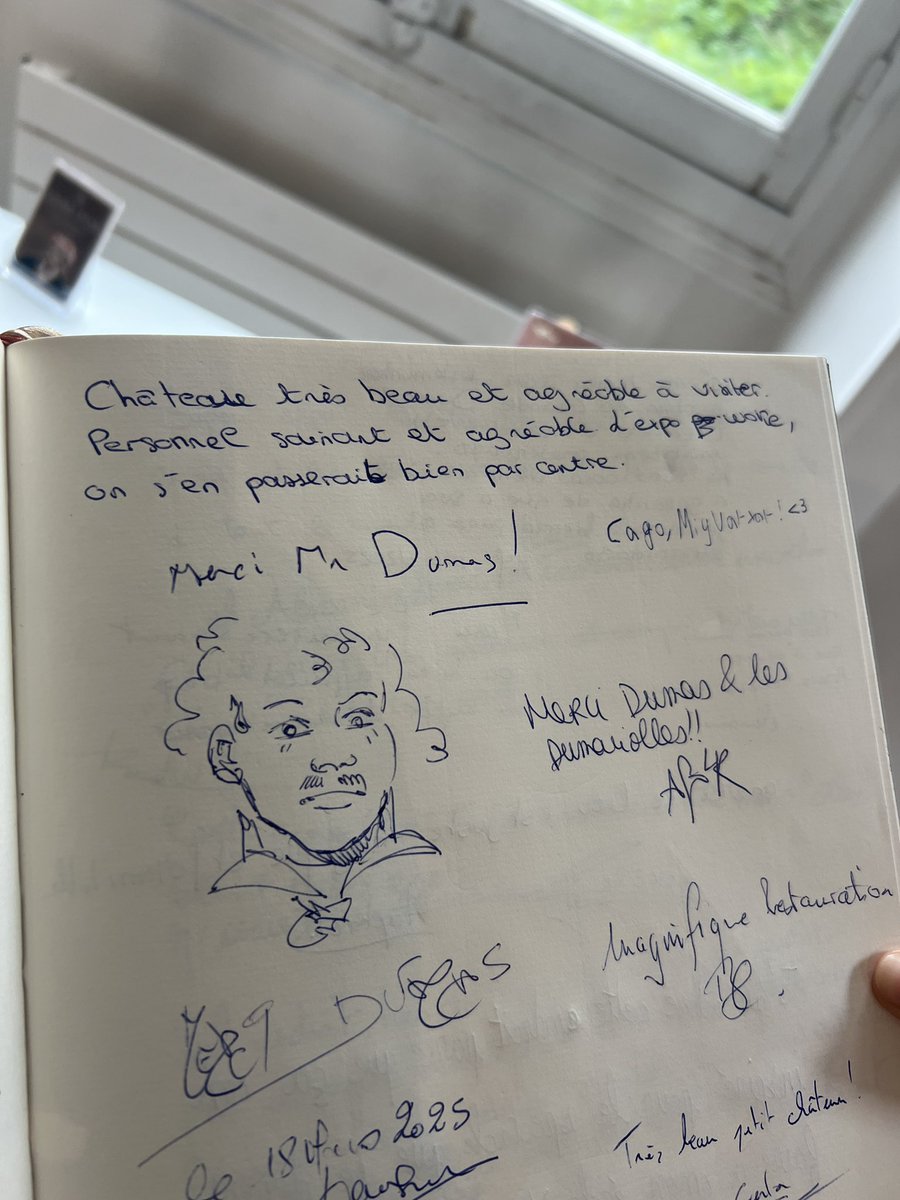 Château très beau et agréable à visiter.
Personnel souriant et agréable d'expo woke,
on s'en passerait bien par contre.
Merci Mr Dumas!
Merci Dumas & les
Dumariolles!!
Magnifique restauration
MERCI DUMAS
le 18 Mars 2025
Très beau petit château!